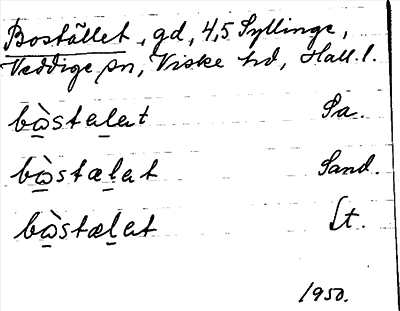 Bostället, gd, 4,5 Syllinge,
Veddige sn, Viske hd, Hall. l.
bò̲stal̲at Sa.
bò̲stæl̲at Sand.
bò̲stæl̲at Lt.
1950.